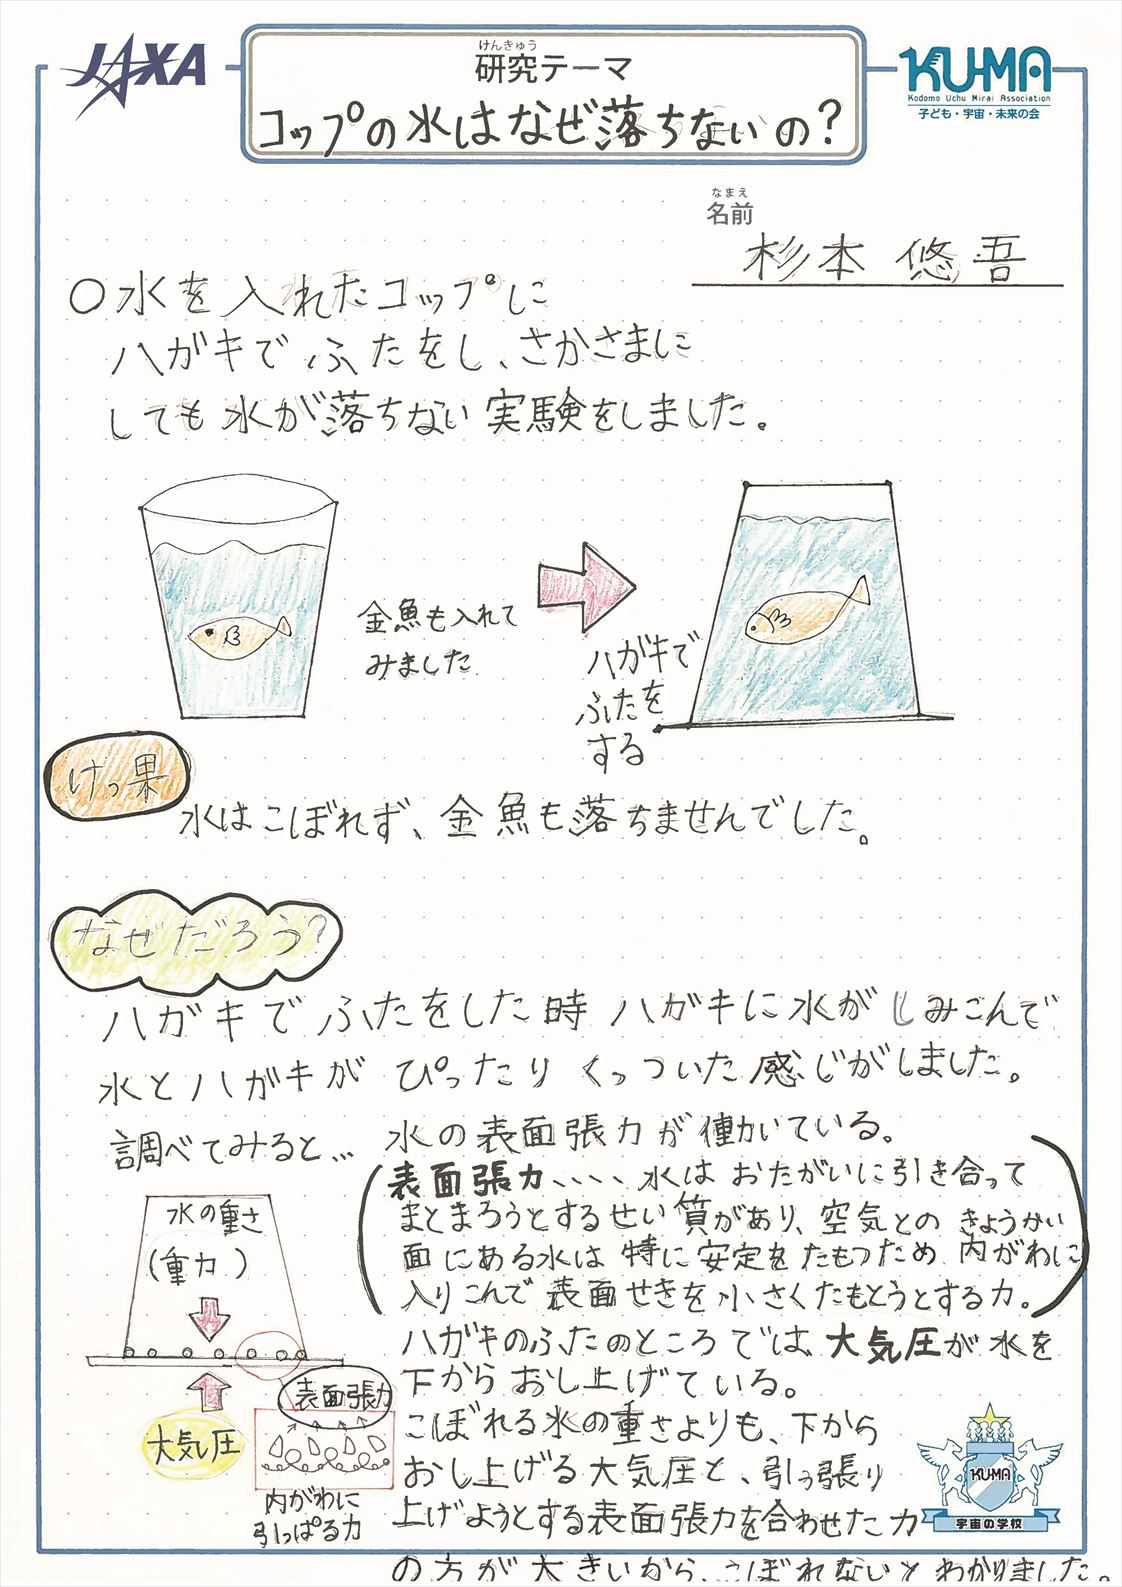 JAXA
けんきゅう
研究テーマ
コップの水はなぜ落ちないの？
KU-MA
Kodomo Uchu Mirai Association
子ども・宇宙・未来の会
なまえ
名前
杉本 悠吾
○水を入れたコップに
ハガキでふたをし、さかさまに
しても水が落ちない実験をしました。
金魚も入れて
みました
ハガキで
ふたを
する
けっ果
水はこぼれず、金魚も落ちませんでした。
なぜだろう？
ハガキでふたをした時 ハガキに水がしみこんで
水とハガキが ぴったりくっついた感じがしました。
調べてみると…
水の表面張力が働いている。
表面張力、、、、水はおたがいに引き合って
まとまろうとするせい質があり、空気とのきょうかい
面にある水は特に安定をたもつため内がわに
入りこんで表面せきを小さくたもとうとする力。
ハガキのふたのところでは、大気圧が水を
下からおし上げている。
こぼれる水の重さよりも、下から
おし上げる大気圧と、引っ張り
上げようとする表面張力を合わせた力
の方が大きいから、こぼれないとわかりました。
水の重さ
(重力)
表面張力
大気圧
内がわに
引っぱる力
KU-MA
宇宙の学校